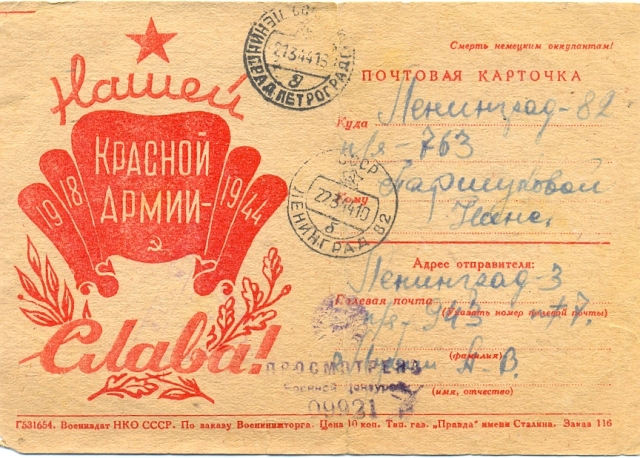 Смерть немецким оккупантам!
ПОЧТОВАЯ КАРТОЧКА
Нашей
КРАСНОЙ
АРМИИ-
1918
1944
Слава!
ЛЕНИНГРАД ПЕТРОГРАДС
21344
8
СССР
2234410
б
ЛЕНИНГРАД 82
Куда Ленинград-82
п/я-763
Кому
Адрес отправителя:
Ленинград-3
Полевая почта
(Указать номер полевой почты)
п/я-943
(фамилия)
А-В.
(имя, отчество)
ПРОСМОТРЕНО
Военной Цензурой
09931
Г531654. Воениздат НКО СССР. По заказу Военкнижторга. Цена 10 коп. Тип. газ. „Правда" имени Сталина. Заказ 116